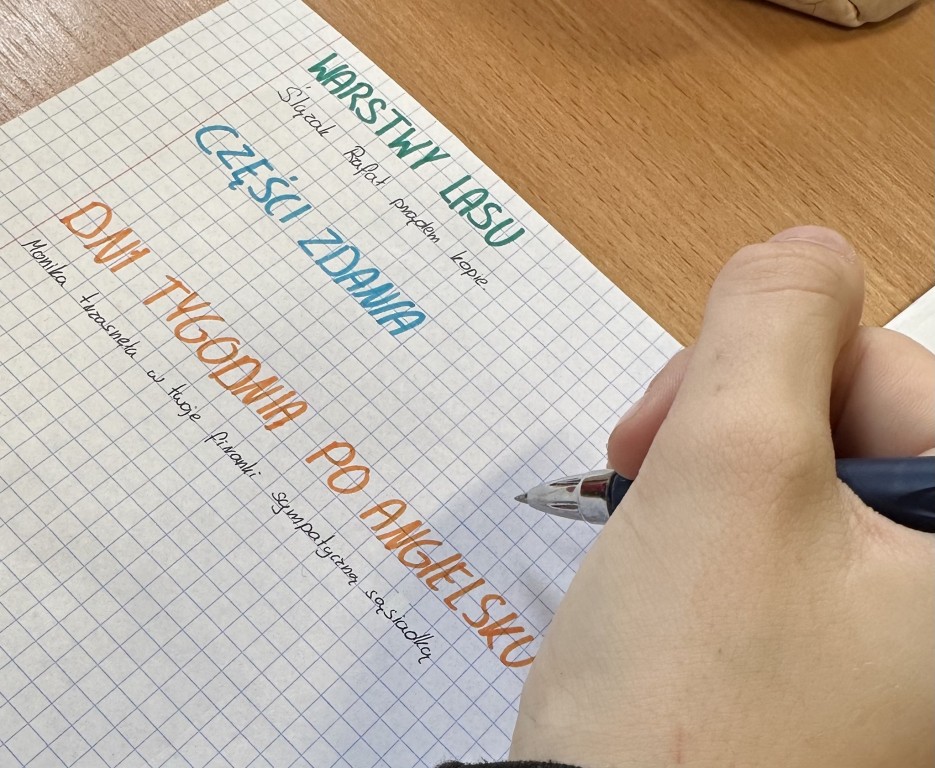 WARSTWY LASU
Ślązak Rafał prądem kopie.
CZĘŚCI ZDANIA
DNI TYGODNIA PO ANGIELSKU
Monika trzasnęła w twoje firanki sympatyczną sąsiadką